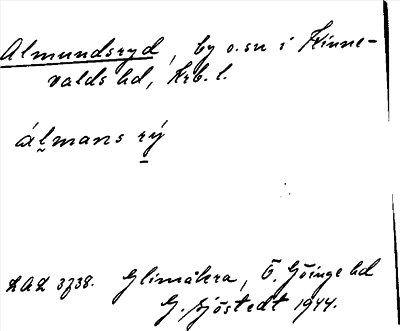 Almundsryd, by o. sn i Kinne-
valds hd, Krb. l.
álmans rý
LAL 3738. Glimåkra, Ö. Göinge hd
G. Sjöstedt 1944.